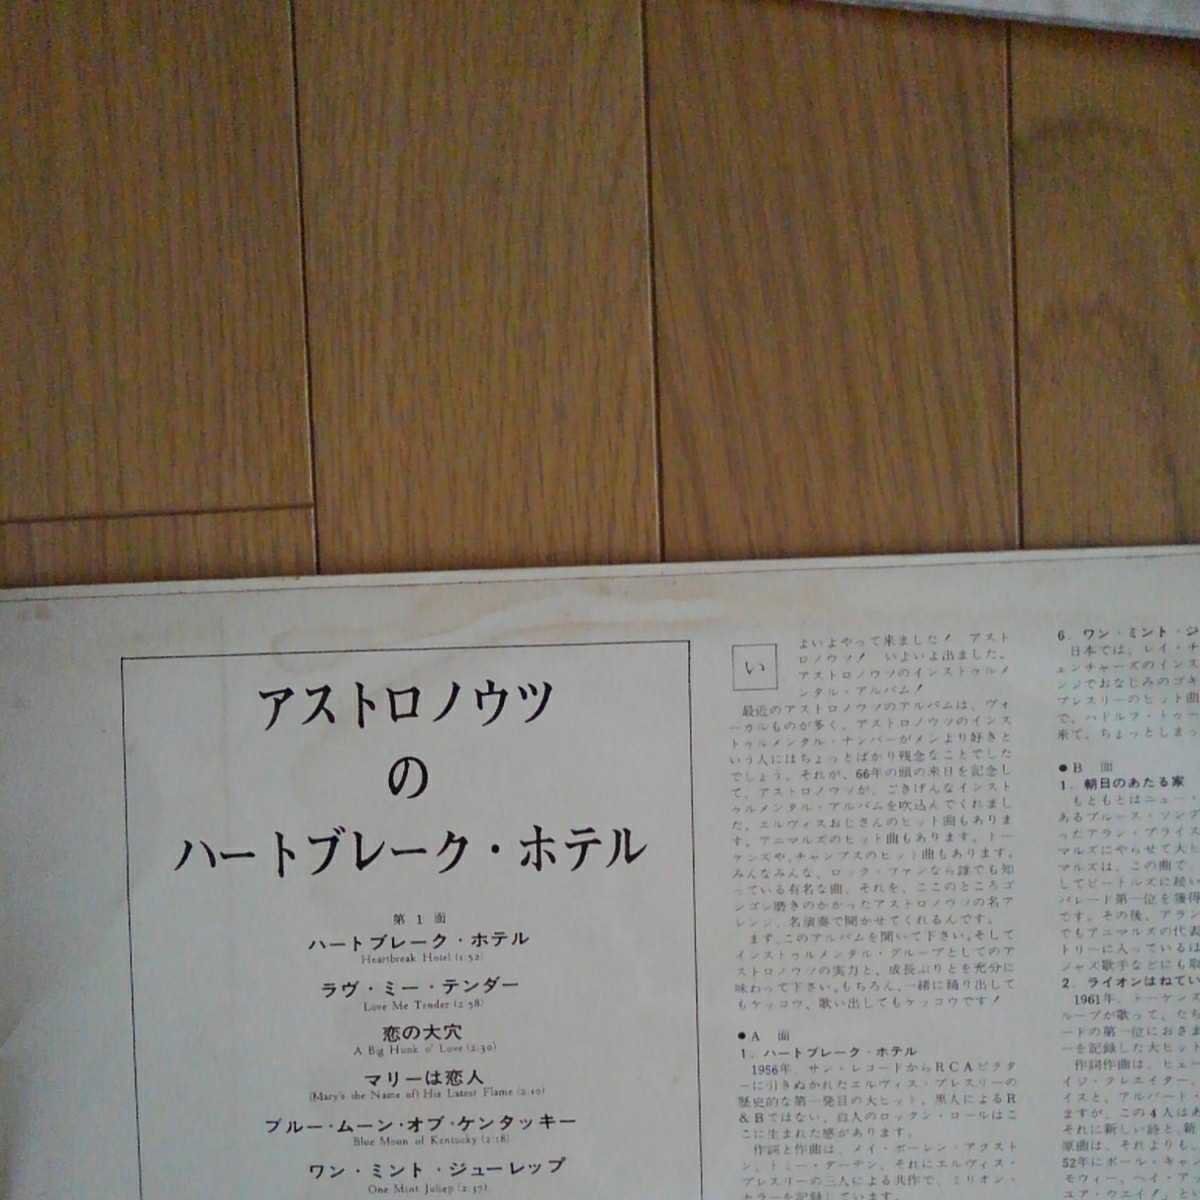 アストロノウツ
の
ハートブレーク・ホテル
第1面
ハートブレーク・ホテル
Heartbreak Hotel (1:52)
ラヴ・ミー・テンダー
Love Me Tender (2:58)
恋の大穴
A Big Hunk o' Love (2:30)
マリーは恋人
(Mary's the Name of) His Latest Flame (2:10)
ブルー・ムーン・オブ・ケンタッキー
Blue Moon of Kentucky (2:18)
ワン・ミント・ジューレップ
One Mint Juliep (2:37)
い
よいよやって来ました! アスト
ロノウツ! いよいよ出ました。
アストロノウツのインストゥルメ
ンタル・アルバム!
最近のアストロノウツのアルバムは、ヴォ
ーカルものが多く、アストロノウツのインス
トゥルメンタル・ナンバーがメンより好きと
いう人にはちょっとばかり残念なことでした
でしょう。それが、66年の頭の来日を記念し
て、アストロノウツが、ごきげんなインスト
ゥルメンタル・アルバムを吹込んでくれまし
た。エルヴィスおじさんのヒット曲もありま
す。アニマルズのヒット曲もあります。トー
ケンズや、チャンプスのヒット曲もあります。
みんなみんな、ロック・ファンなら誰でも知
っている有名な曲、それを、ここのところゴ
ンゴン磨きのかかったアストロノウツの名ア
レンジ、名演奏で聞かせてくれるんです。
まず、このアルバムを聞いて下さい。そして
インストゥルメンタル・グループとしてのア
ストロノウツの実力と、成長ぶりとを充分に
味わって下さい。もちろん、一緒に踊り出して
もケッコウ、歌い出してもケッコウです!
●A 面
1. ハートブレーク・ホテル
1956年、サン・レコードからRCAビクタ
ーに引きぬかれたエルヴィス・プレスリーの
歴史的な第一発目の大ヒット。黒人によるR
&Bではない、白人のロックン・ロールはこ
こに生まれた感があります。
作詞と作曲は、メイ・ボーレン・アクスト
ン、トミー・ダーデン、それにエルヴィス・
プレスリーの三人による共作で、ミリオン・
セラーを記録しています。
6. ワン・ミント・ジ
日本では、レイ・チ
ェンチャーズのインス
ンジでおなじみのゴキ
プレスリーのヒット曲
で、ハドルフ・トゥー
来て、ちょっとしまっ
●B 面
1. 朝日のあたる家
もともとはニュー・
あるブルース・ソング
ったアラン・プライ
マルズにやらせて大ヒ
マルズは、この曲で
してビートルズに続い
パレード第一位を獲得
です。その後、アラン
でもアニマルズの代表
トリーに入っているほ
ジャズ歌手などにも取
2. ライオンはねてい
1961年、トーケンス
ループが歌って、たち
ードの第一位におさま
ーを記録した大ヒット
作詞作曲は、ヒュー
イジ・クレイター、
イスと、アルバート・
ますが、この4人は
それに新しい詩と、新
原曲は、それよりも、
52年にポール・キャン
モウィー、ヘイ・ア